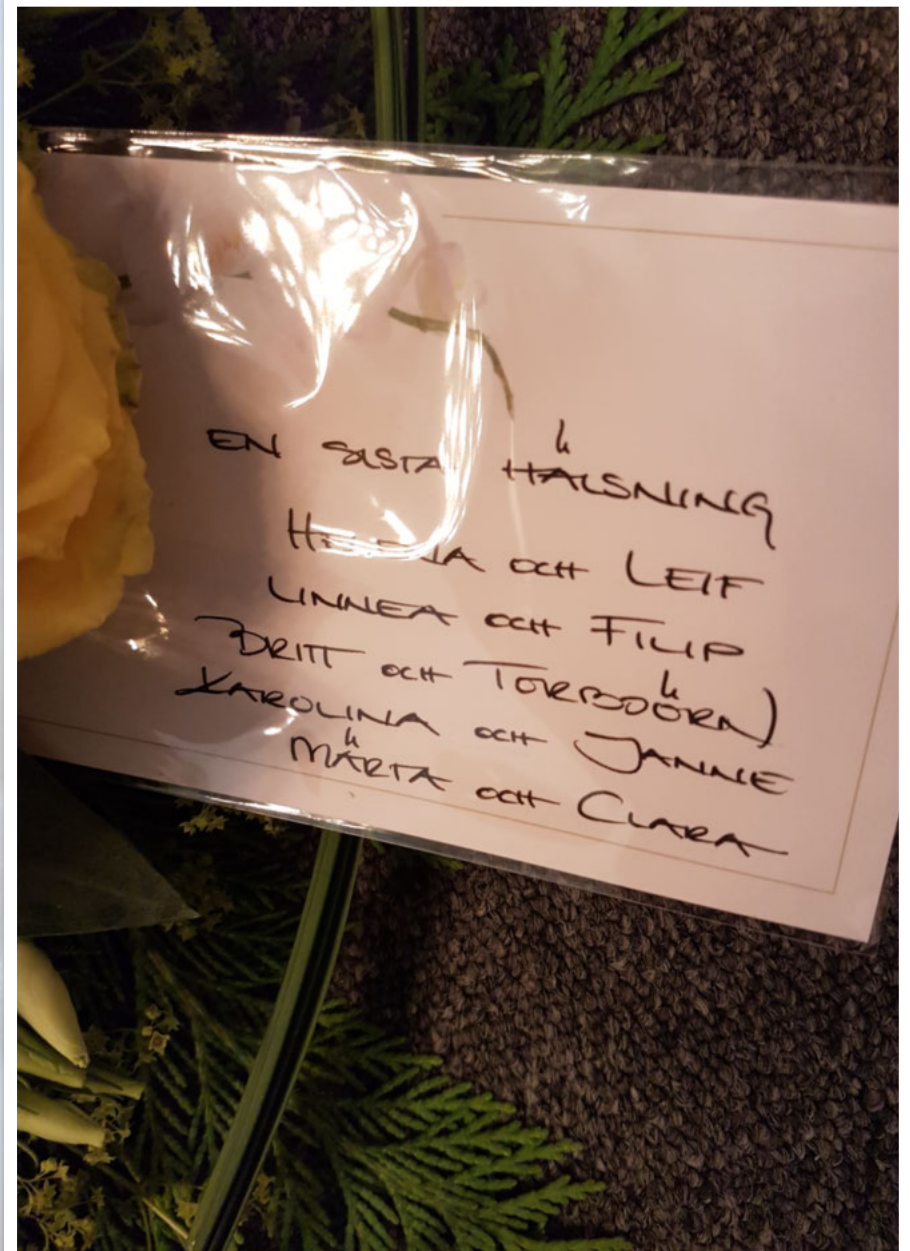 EN SISTA HÄLSNING
OCH LEIF
LINNEA OCH FILIP
BRITT OCH TORBJÖRN
KAROLINA OCH JANNE
MÄRTA OCH CLARA